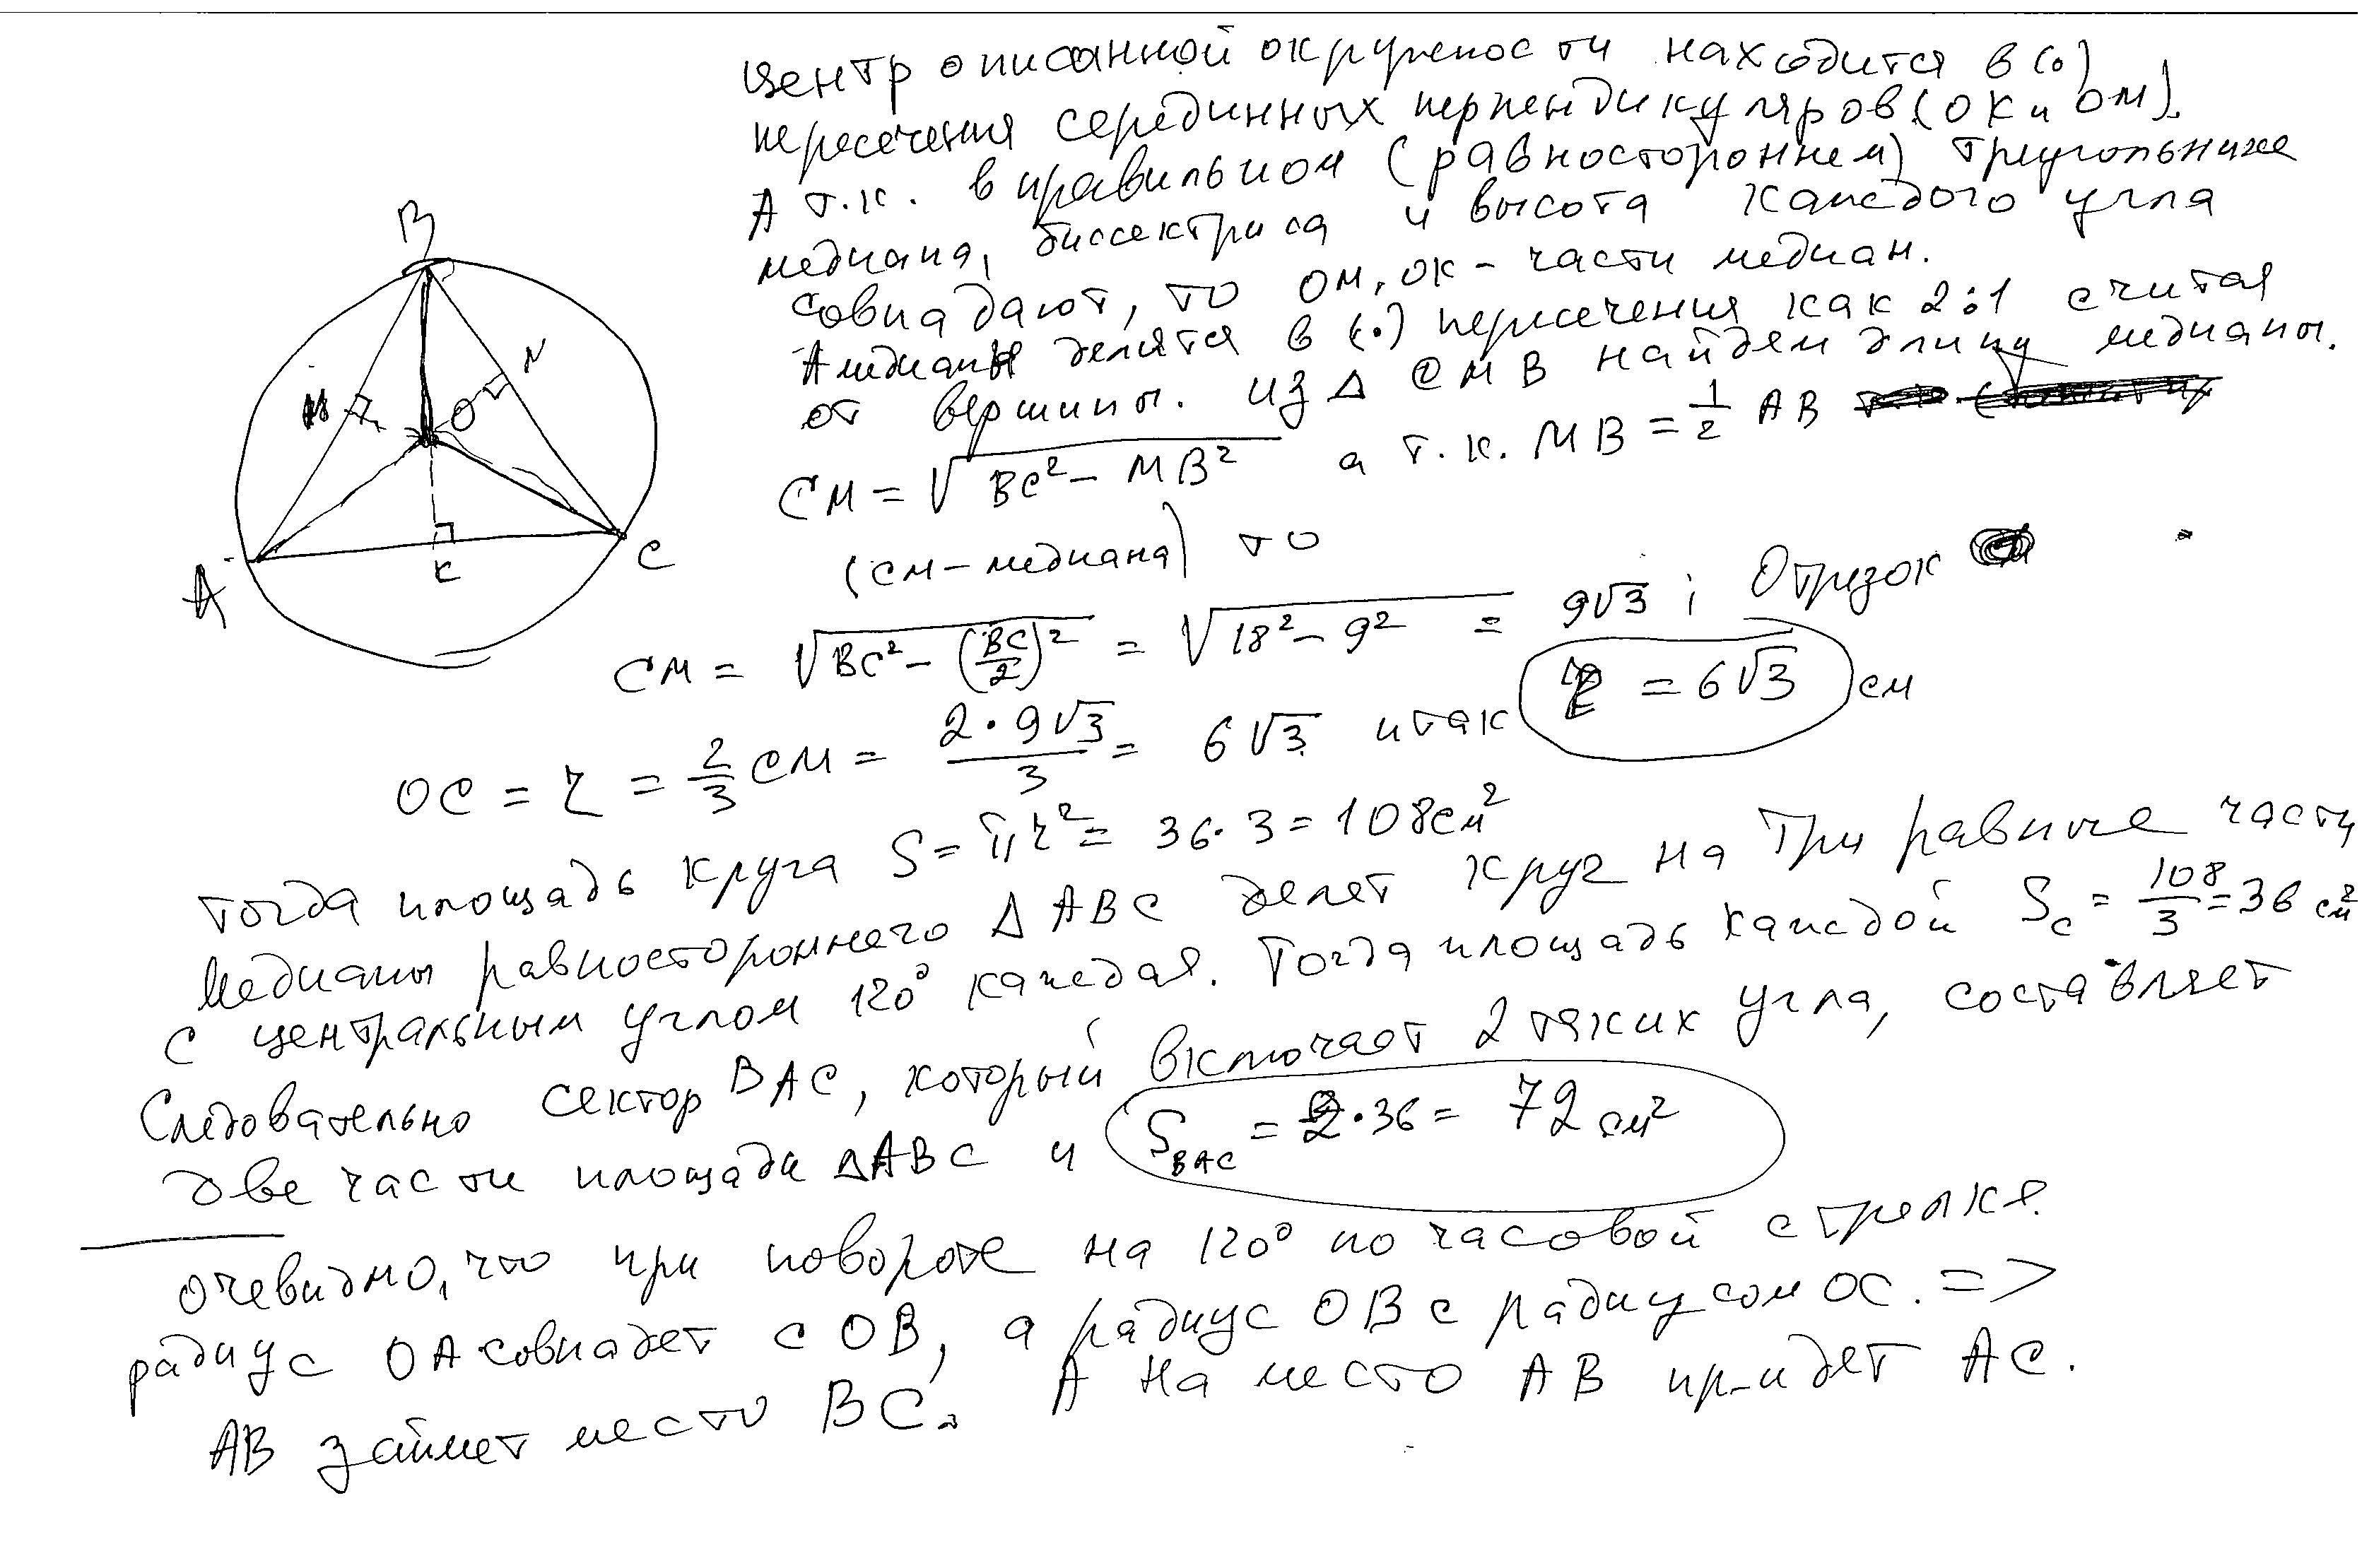 центр описанной окружности находится в (·)
пересечения серединных перпендикуляров (ОК и ОМ).
А т.к. в правильном (равностороннем) треугольнике
медиана, биссектриса и высота каждого угла
совпадают, то ОМ, ОК - части медиан.
А медианы делятся в (·) пересечения как 2:1 считая
от вершины. Из Δ СМВ найдем длину медианы.
СМ = √(ВС² - МВ²) а т.к. МВ = 1/2 АВ
(СМ - медиана) то
СМ = √(ВС² - (ВС/2)²) = √(18² - 9²) = 9√3 ; Отрезок
ОС = r = 2/3 СМ = 2·9√3/3 = 6√3 итак r = 6√3 см
Тогда площадь круга S = πr² = 36·3 = 108 см²
Медианы равностороннего Δ АВС делят круг на три равные части
с центральным углом 120° каждая. Тогда площадь каждой Sс = 108/3 = 36 см²
Следовательно сектор ВАС, который включает 2 таких угла, составляет
две части площади ΔАВС и S ВАС = 2·36 = 72 см²
Очевидно, что при повороте на 120° по часовой стрелке
радиус ОА совпадет с ОВ, а радиус ОВ с радиусом ОС. =>
АВ займет место ВС. А на место АВ придет АС.
В
М
N
О
А
К
С